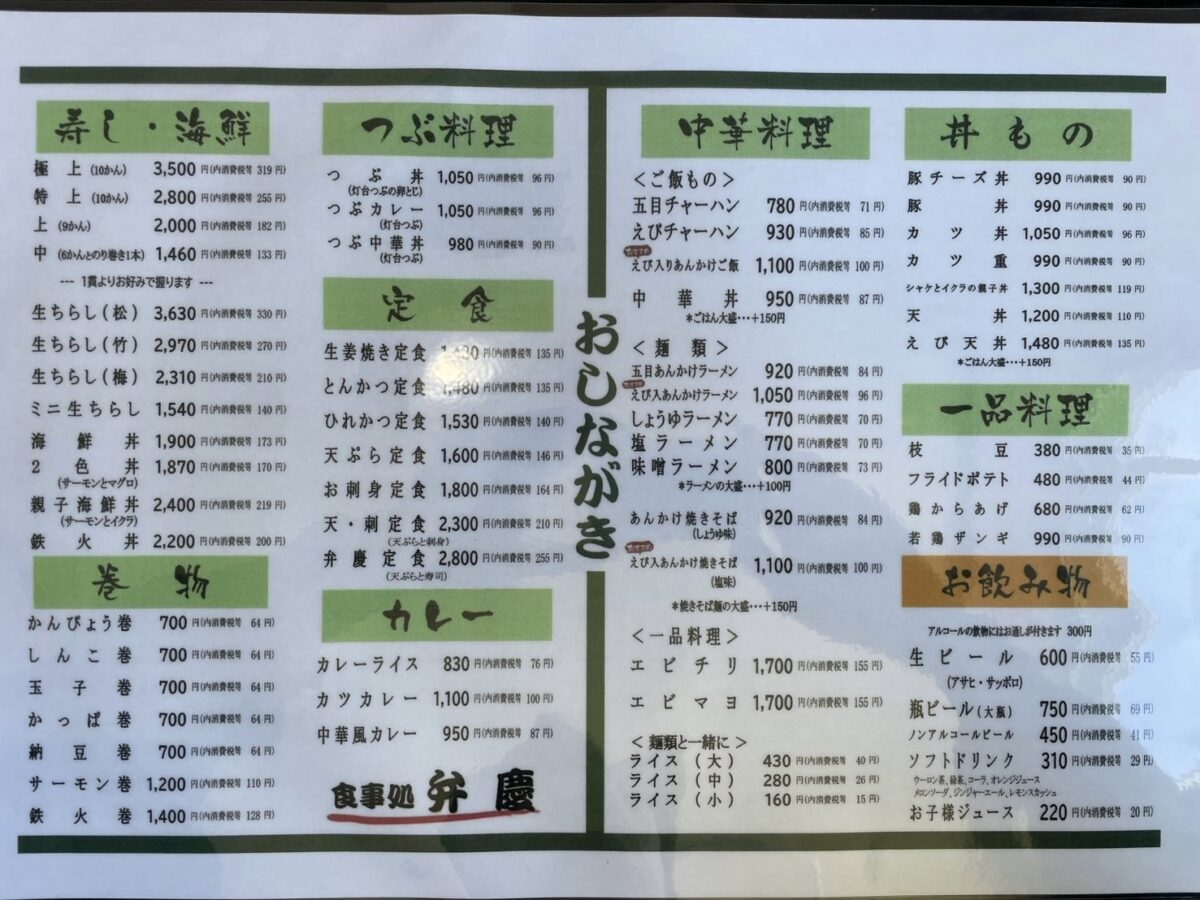 寿し・海鮮
極上(10かん) 3,500円(内消費税等 319円)
特上(10かん) 2,800円(内消費税等 255円)
上(9かん) 2,000円(内消費税等 182円)
中(6かんとのり巻き1本) 1,460円(内消費税等 133円)
--- 1貫よりお好みで握ります ---
生ちらし(松) 3,630円(内消費税等 330円)
生ちらし(竹) 2,970円(内消費税等 270円)
生ちらし(梅) 2,310円(内消費税等 210円)
ミニ生ちらし 1,540円(内消費税等 140円)
海鮮丼 1,900円(内消費税等 173円)
2色丼 1,870円(内消費税等 170円)
(サーモンとマグロ)
親子海鮮丼 2,400円(内消費税等 219円)
(サーモンとイクラ)
鉄火丼 2,200円(内消費税等 200円)
巻物
かんぴょう巻 700円(内消費税等 64円)
しんこ巻 700円(内消費税等 64円)
玉子巻 700円(内消費税等 64円)
かっぱ巻 700円(内消費税等 64円)
納豆巻 700円(内消費税等 64円)
サーモン巻 1,200円(内消費税等 110円)
鉄火巻 1,400円(内消費税等 128円)
つぶ料理
つぶ丼 1,050円(内消費税等 96円)
(灯台つぶの卵とじ)
つぶカレー 1,050円(内消費税等 96円)
(灯台つぶ)
つぶ中華丼 980円(内消費税等 90円)
(灯台つぶ)
定食
生姜焼き定食 円(内消費税等 135円)
とんかつ定食 1,480円(内消費税等 135円)
ひれかつ定食 1,530円(内消費税等 140円)
天ぷら定食 1,600円(内消費税等 146円)
お刺身定食 1,800円(内消費税等 164円)
天・刺定食 2,300円(内消費税等 210円)
(天ぷらと刺身)
弁慶定食 2,800円(内消費税等 255円)
(天ぷらと寿司)
カレー
カレーライス 830円(内消費税等 76円)
カツカレー 1,100円(内消費税等 100円)
中華風カレー 950円(内消費税等 87円)
食事処 弁慶
おしながき
中華料理
<ご飯もの>
五目チャーハン 780円(内消費税等 71円)
えびチャーハン 930円(内消費税等 85円)
おすすめ
えび入りあんかけご飯 1,100円(内消費税等 100円)
中華丼 950円(内消費税等 87円)
*ごはん大盛…+150円
<麺類>
五目あんかけラーメン 920円(内消費税等 84円)
おすすめ
えび入あんかけラーメン 1,050円(内消費税等 96円)
しょうゆラーメン 770円(内消費税等 70円)
塩ラーメン 770円(内消費税等 70円)
味噌ラーメン 800円(内消費税等 73円)
*ラーメンの大盛…+100円
あんかけ焼きそば 920円(内消費税等 84円)
(しょうゆ味)
おすすめ
えび入あんかけ焼きそば 1,100円(内消費税等 100円)
(塩味)
*焼きそば麺の大盛…+150円
<一品料理>
エビチリ 1,700円(内消費税等 155円)
エビマヨ 1,700円(内消費税等 155円)
<麺類と一緒に>
ライス(大) 430円(内消費税等 40円)
ライス(中) 280円(内消費税等 26円)
ライス(小) 160円(内消費税等 15円)
丼もの
豚チーズ丼 990円(内消費税等 90円)
豚丼 990円(内消費税等 90円)
カツ丼 1,050円(内消費税等 96円)
カツ重 990円(内消費税等 90円)
シャケとイクラの親子丼 1,300円(内消費税等 119円)
天丼 1,200円(内消費税等 110円)
えび天丼 1,480円(内消費税等 135円)
*ごはん大盛…+150円
一品料理
枝豆 380円(内消費税等 35円)
フライドポテト 480円(内消費税等 44円)
鶏からあげ 680円(内消費税等 62円)
若鶏ザンギ 990円(内消費税等 90円)
お飲み物
アルコールの飲物にはお通しが付きます 300円
生ビール 600円(内消費税等 55円)
(アサヒ・サッポロ)
瓶ビール(大瓶) 750円(内消費税等 69円)
ノンアルコールビール 450円(内消費税等 41円)
ソフトドリンク 310円(内消費税等 29円)
ウーロン茶、緑茶、コーラ、オレンジジュース
メロンソーダ、ジンジャーエール、レモンスカッシュ
お子様ジュース 220円(内消費税等 20円)